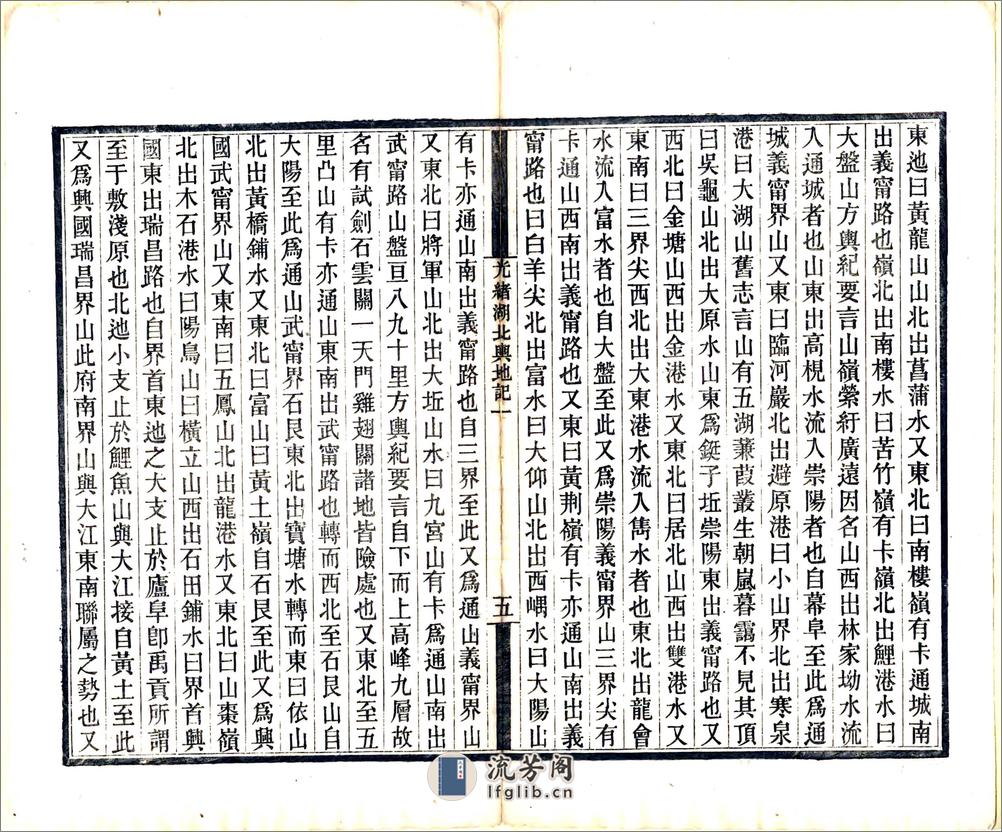 東迆曰黃龍山山北出菖蒲水又東北曰南樓嶺有卡通城南
出義甯路也嶺北出南樓水曰苦竹嶺有卡嶺北出鯉港水曰
大盤山方輿紀要言山嶺縈紆廣遠因名山西出林家坳水流
入通城者也山東出高梘水流入崇陽者也自幕阜至此爲通
城義甯界山又東曰臨河巖北出避原港曰小山界北出寒泉
港曰大湖山舊志言山有五湖蒹葭叢生朝嵐暮靄不見其頂
曰吳龜山北出大原水山東爲鋌子坵崇陽東出義甯路也又
西北曰金塘山西出金港水又東北曰居北山西出雙港水又
東南曰三界尖西北出大東港水流入雋水者也東北出龍會
水流入富水者也自大盤至此又爲崇陽義甯界山三界尖有
卡通山西南出義甯路也又東曰黃荆嶺有卡亦通山南出義
甯路也曰白羊尖北出富水曰大仰山北出西嵎水曰大陽山
光緒湖北輿地記一
五
有卡亦通山南出義甯路也自三界至此又爲通山義甯界山
又東北曰將軍山北出大坵山水曰九宮山有卡爲通山南出
武甯路山盤亘八九十里方輿紀要言自下而上高峰九層故
名有試劍石雲關一天門雞翅關諸地皆險處也又東北至五
里凸山有卡亦通山東南出武甯路也轉而西北至石艮山自
大陽至此爲通山武甯界石艮東北出寶塘水轉而東曰依山
北出黃橋鋪水又東北曰富山曰黃土嶺自石艮至此又爲興
國武甯界山又東南曰五鳳山北出龍港水又東北曰山棗嶺
北出木石港水曰陽鳥山曰橫立山西出石田鋪水曰界首興
國東出瑞昌路也自界首東迆之大支止於廬阜卽禹貢所謂
至于敷淺原也北迆小支止於鯉魚山與大江接自黃土至此
又爲興國瑞昌界山此府南界山與大江東南聯屬之勢也又
流芳阁
lfglib.cn